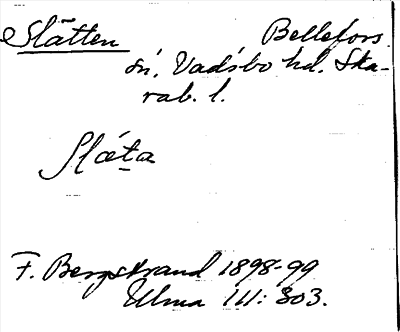 Slätten Bellefors
sn. Vadsbo hd. Ska-
rab. l.
Slæta
F. Bergstrand 1898-99
Ulma 111: 303.